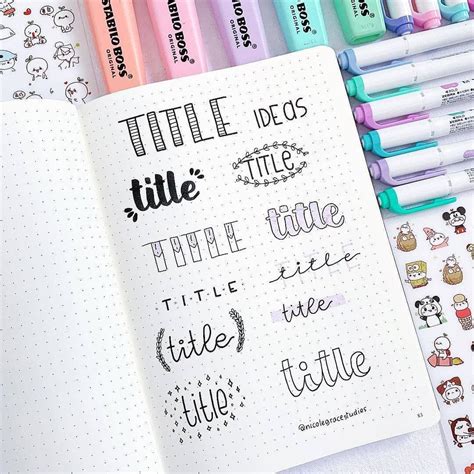 STABILO BOSS
ORIGINAL
STABILO BOSS
ORIGINAL
STABILO BOSS
ORIGINAL
STABILO BOSS
ORIGINAL
TITLE IDEAS
title
TITLE
TITLE
title
TITLE
title
title
title
title
title
@nicolegracestudies